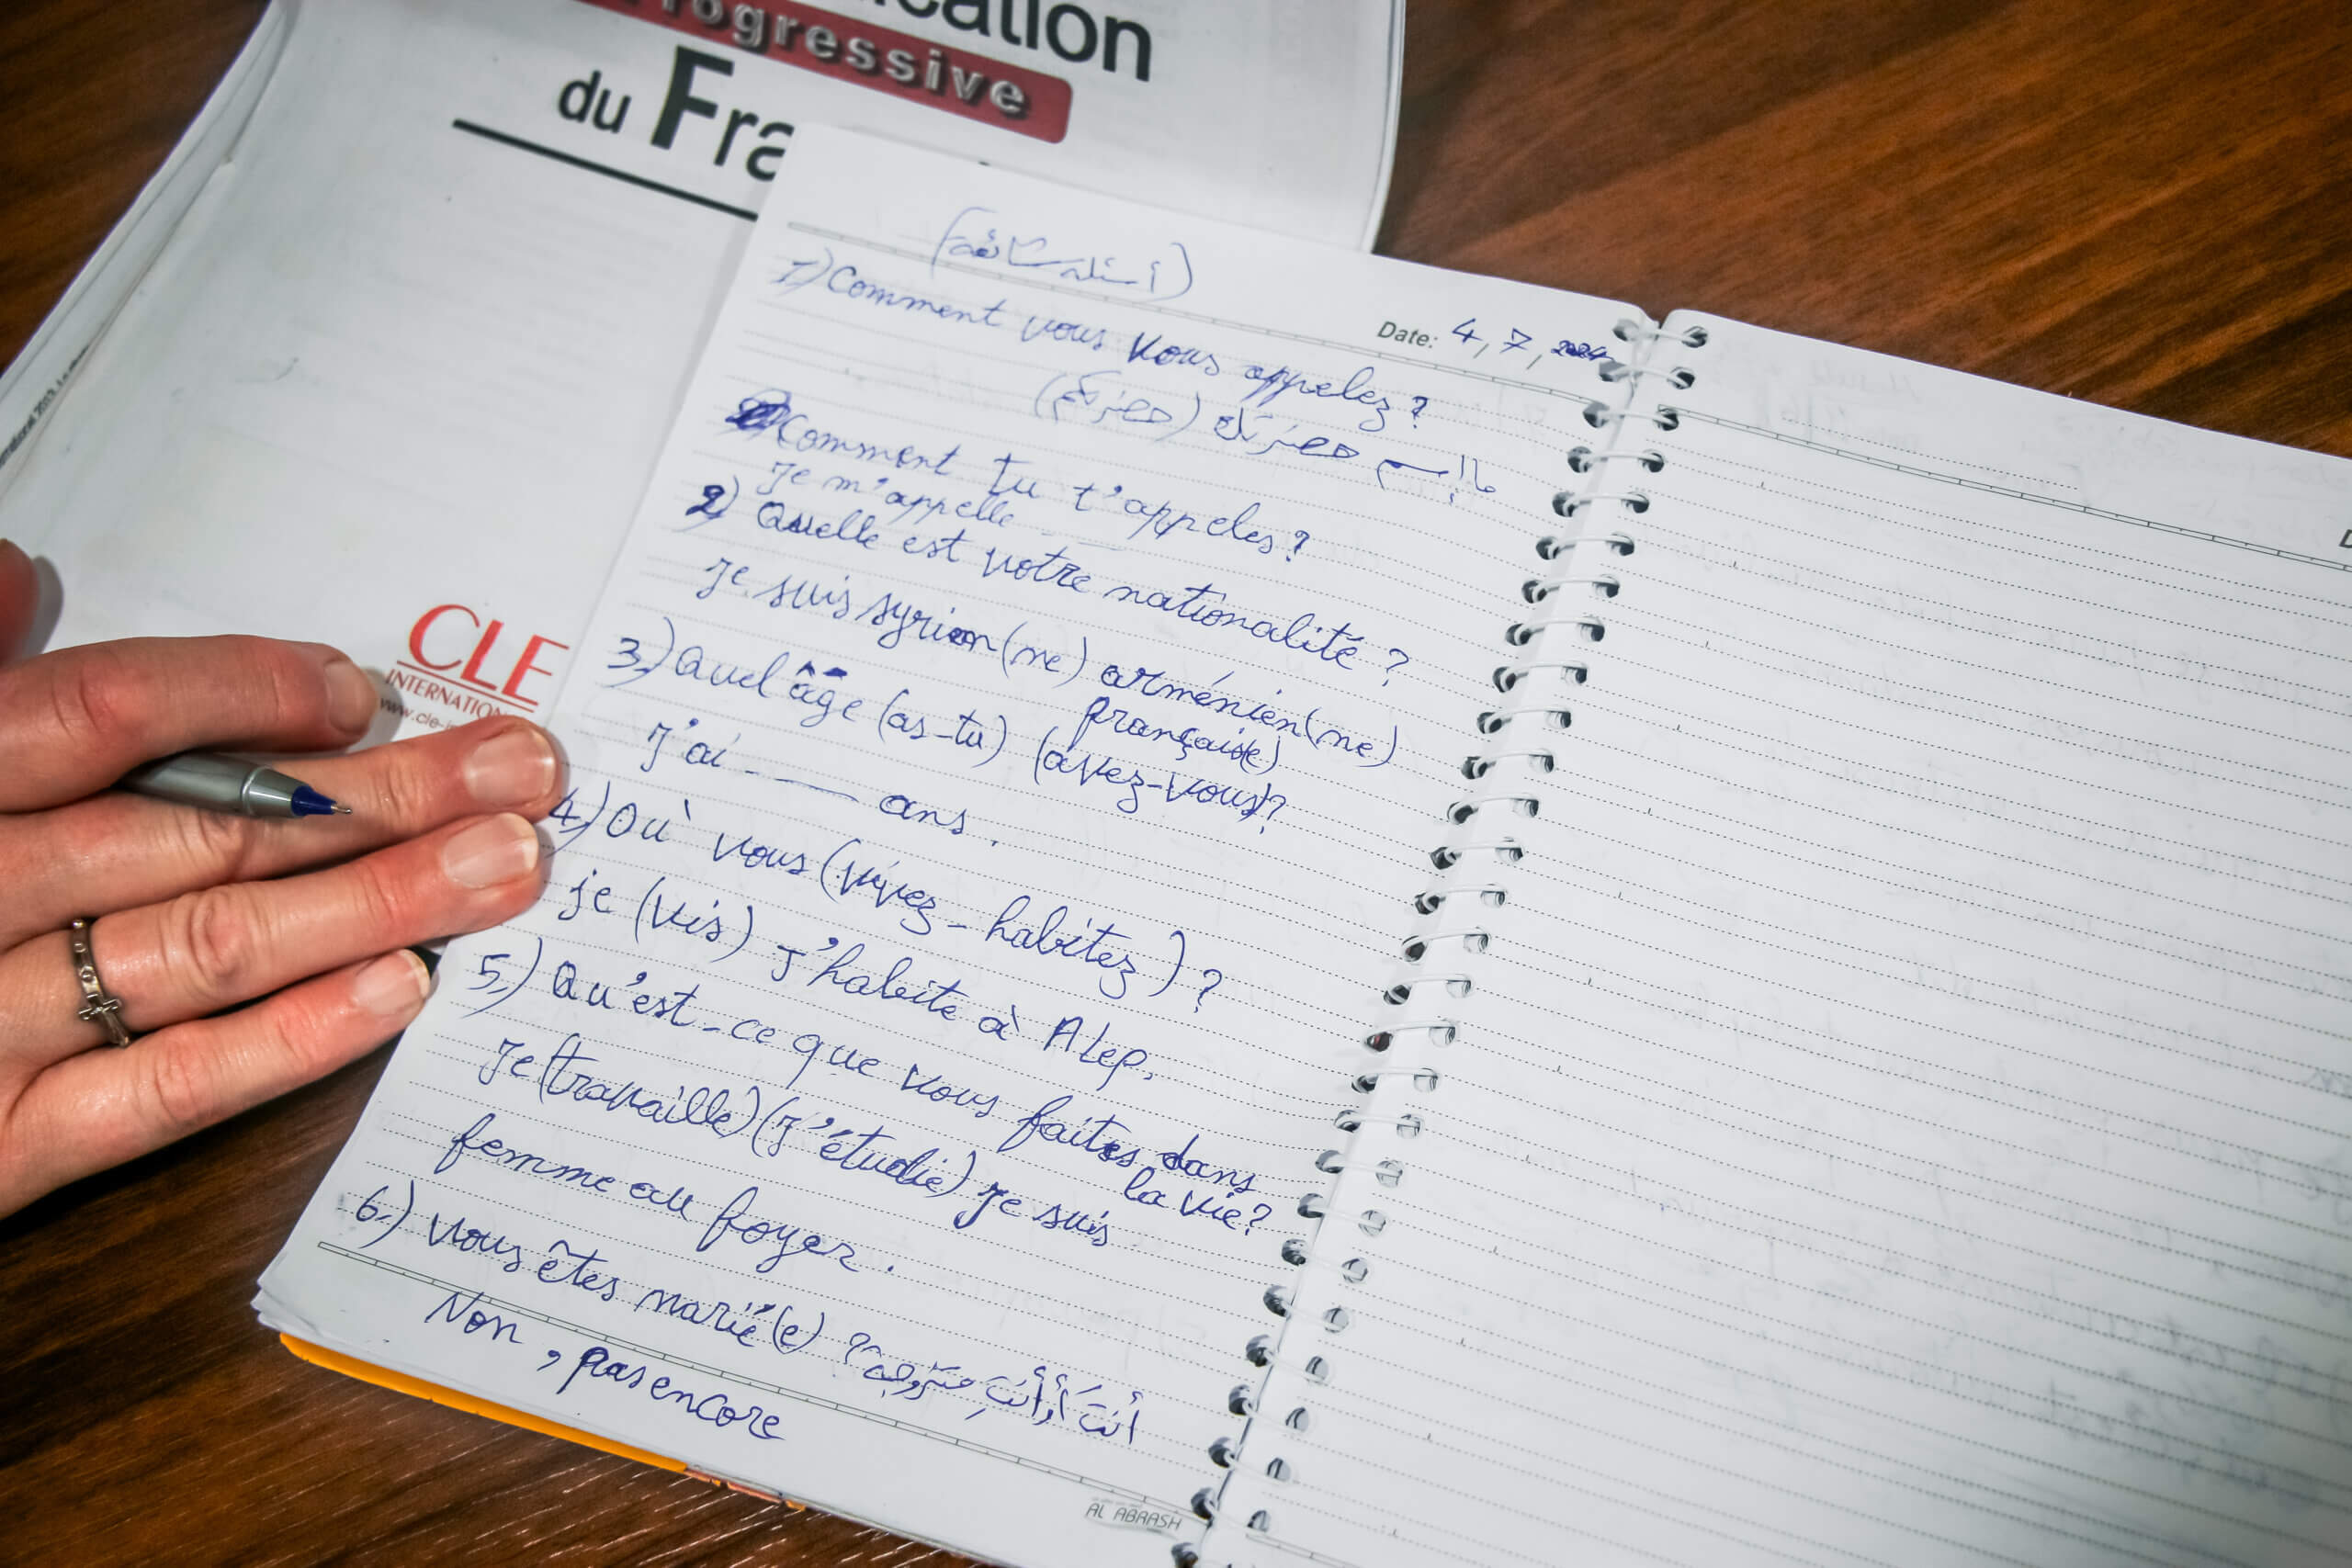 cation
Progressive
du Fra
CLE
INTERNATION
www.cle-i
(أسئلة شائعة)
Date: 4, 7, 2024
1) Comment vous vous appelez ?
ما إسم حضرتك (حضرتكم)
Comment tu t'appeles ?
Je m'appelle
2) Quelle est votre nationalité ?
Je suis syrien (ne) arménien (ne)
française)
3.) Quel âge (as-tu) (avez-vous)?
J'ai ____ ans.
4.) Où vous (vivez - habitez) ?
je (vis) J'habite à Alep.
5.) Qu'est-ce que vous faites dans
la vie?
Je (travaille) (J'étudie) Je suis
femme au foyer.
6.) Vous êtes marié(e) ? أنتَ أو أنتِ متزوجة
Non, pas encore
AL ABRASH